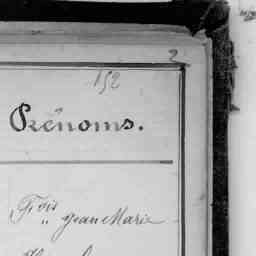 2
152
Prénoms.
Fois
" Jean Marie